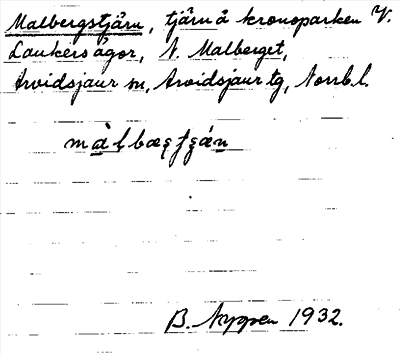 Malbergstjärn, tjärn å kronoparken V.
Laukers ägor, N. Malberget,
Arvidsjaur sn, Arvidsjaur tg, Norrb. l.
B. Nygren 1932.